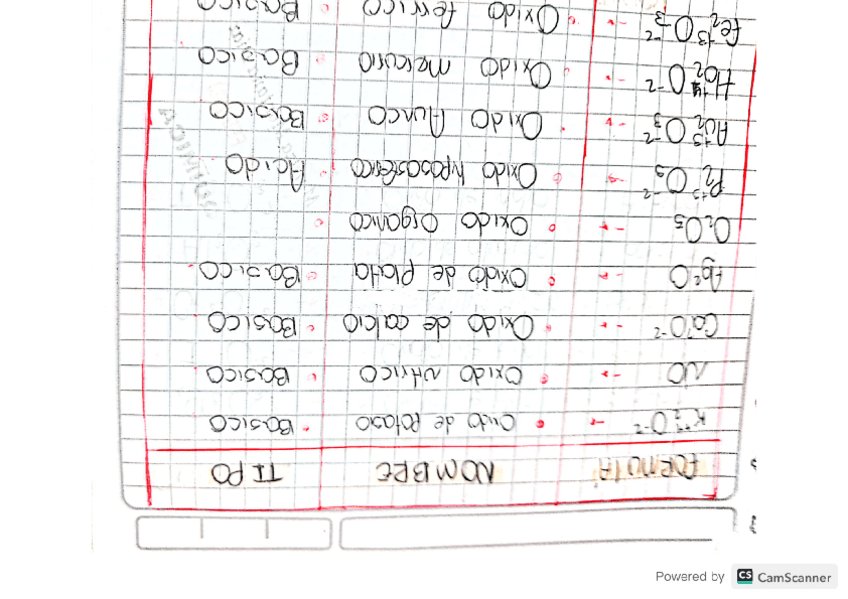 FORMULA NOMBRE TIPO
K₂⁺¹O⁻² → • Oxido de Potasio • Basico
NO → • Oxido Nitrico • Basico
CaO⁻² → • Oxido de calcio • Basico
Ag²O → • Oxido de plata • Basico
O₂O₅ → • Oxido Organico •
P₂⁺³O₃⁻² → • Oxido hipososferico • Acido
Au₂⁺³O₃⁻² → • Oxido Aurico • Basico
O⁻² → • Oxido mercurio • Basico
Fe₂⁺³O₃⁻² → • Oxido ferrico • Basico
Powered by CS CamScanner